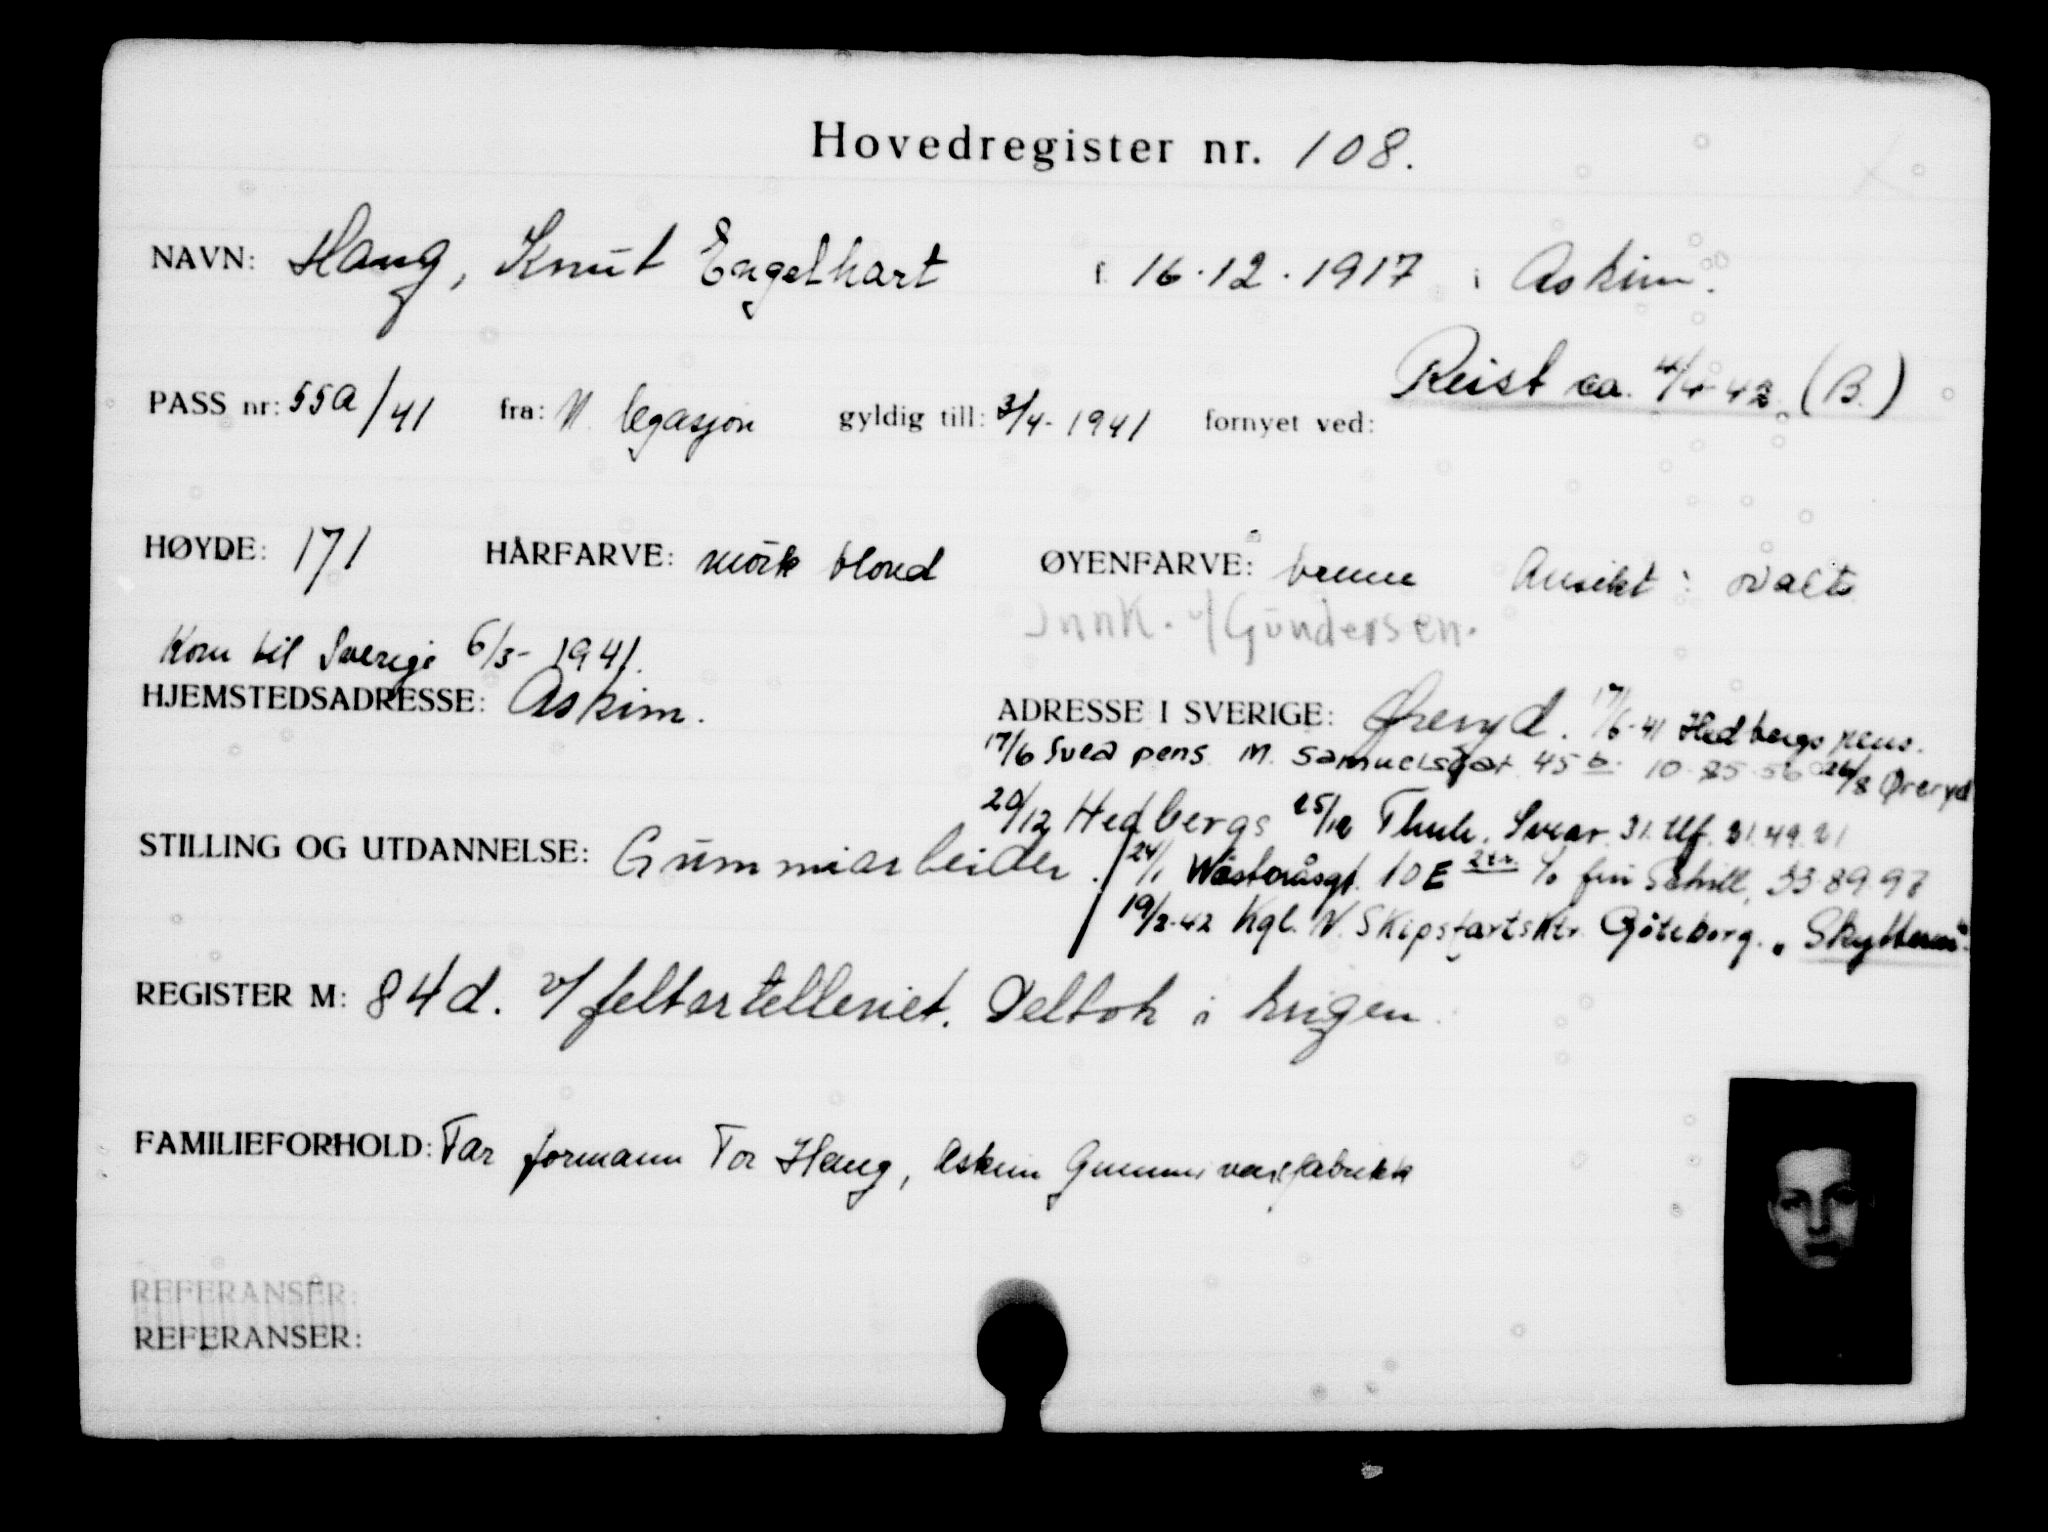 Hovedregister nr. 108.
NAVN: Haug, Knut Engelhart f. 16.12.1917 i Askim.
Reist ca. 4/4-42. (B.)
PASS nr: 55a/41 fra: N. legasjon gyldig till: 3/4-1941 fornyet ved:
HØYDE: 171 HÅRFARVE: mörk blond ØYENFARVE: brune Ansikt: ovalt
Innk. v/ Gundersen.
Kom til Sverige 6/3-1941.
HJEMSTEDSADRESSE: Askim. ADRESSE I SVERIGE: Øreryd. 17/6-41 Hedbergs pens.
17/6 Svea pens. M. Samuelsgat 45 b. 10 85 56 26/8 Øreryd
20/12 Hedbergs 25/12 Thule. Svear. 31. tlf. 31.49.21
STILLING OG UTDANNELSE: Gummiarbeider.
24/1 Wästeråsgt. 10 E 2 tr. c/o frü 33.89.97
19/2-42 Kgl. N. Skipsfartsktr. Göteborg. "Skytteren".
REGISTER M: 84d. v/ feltartelleriet. Deltok i krigen.
FAMILIEFORHOLD: Far formann Tor Haug, Askim Gummivarefabrikk
REFERANSER:
REFERANSER: